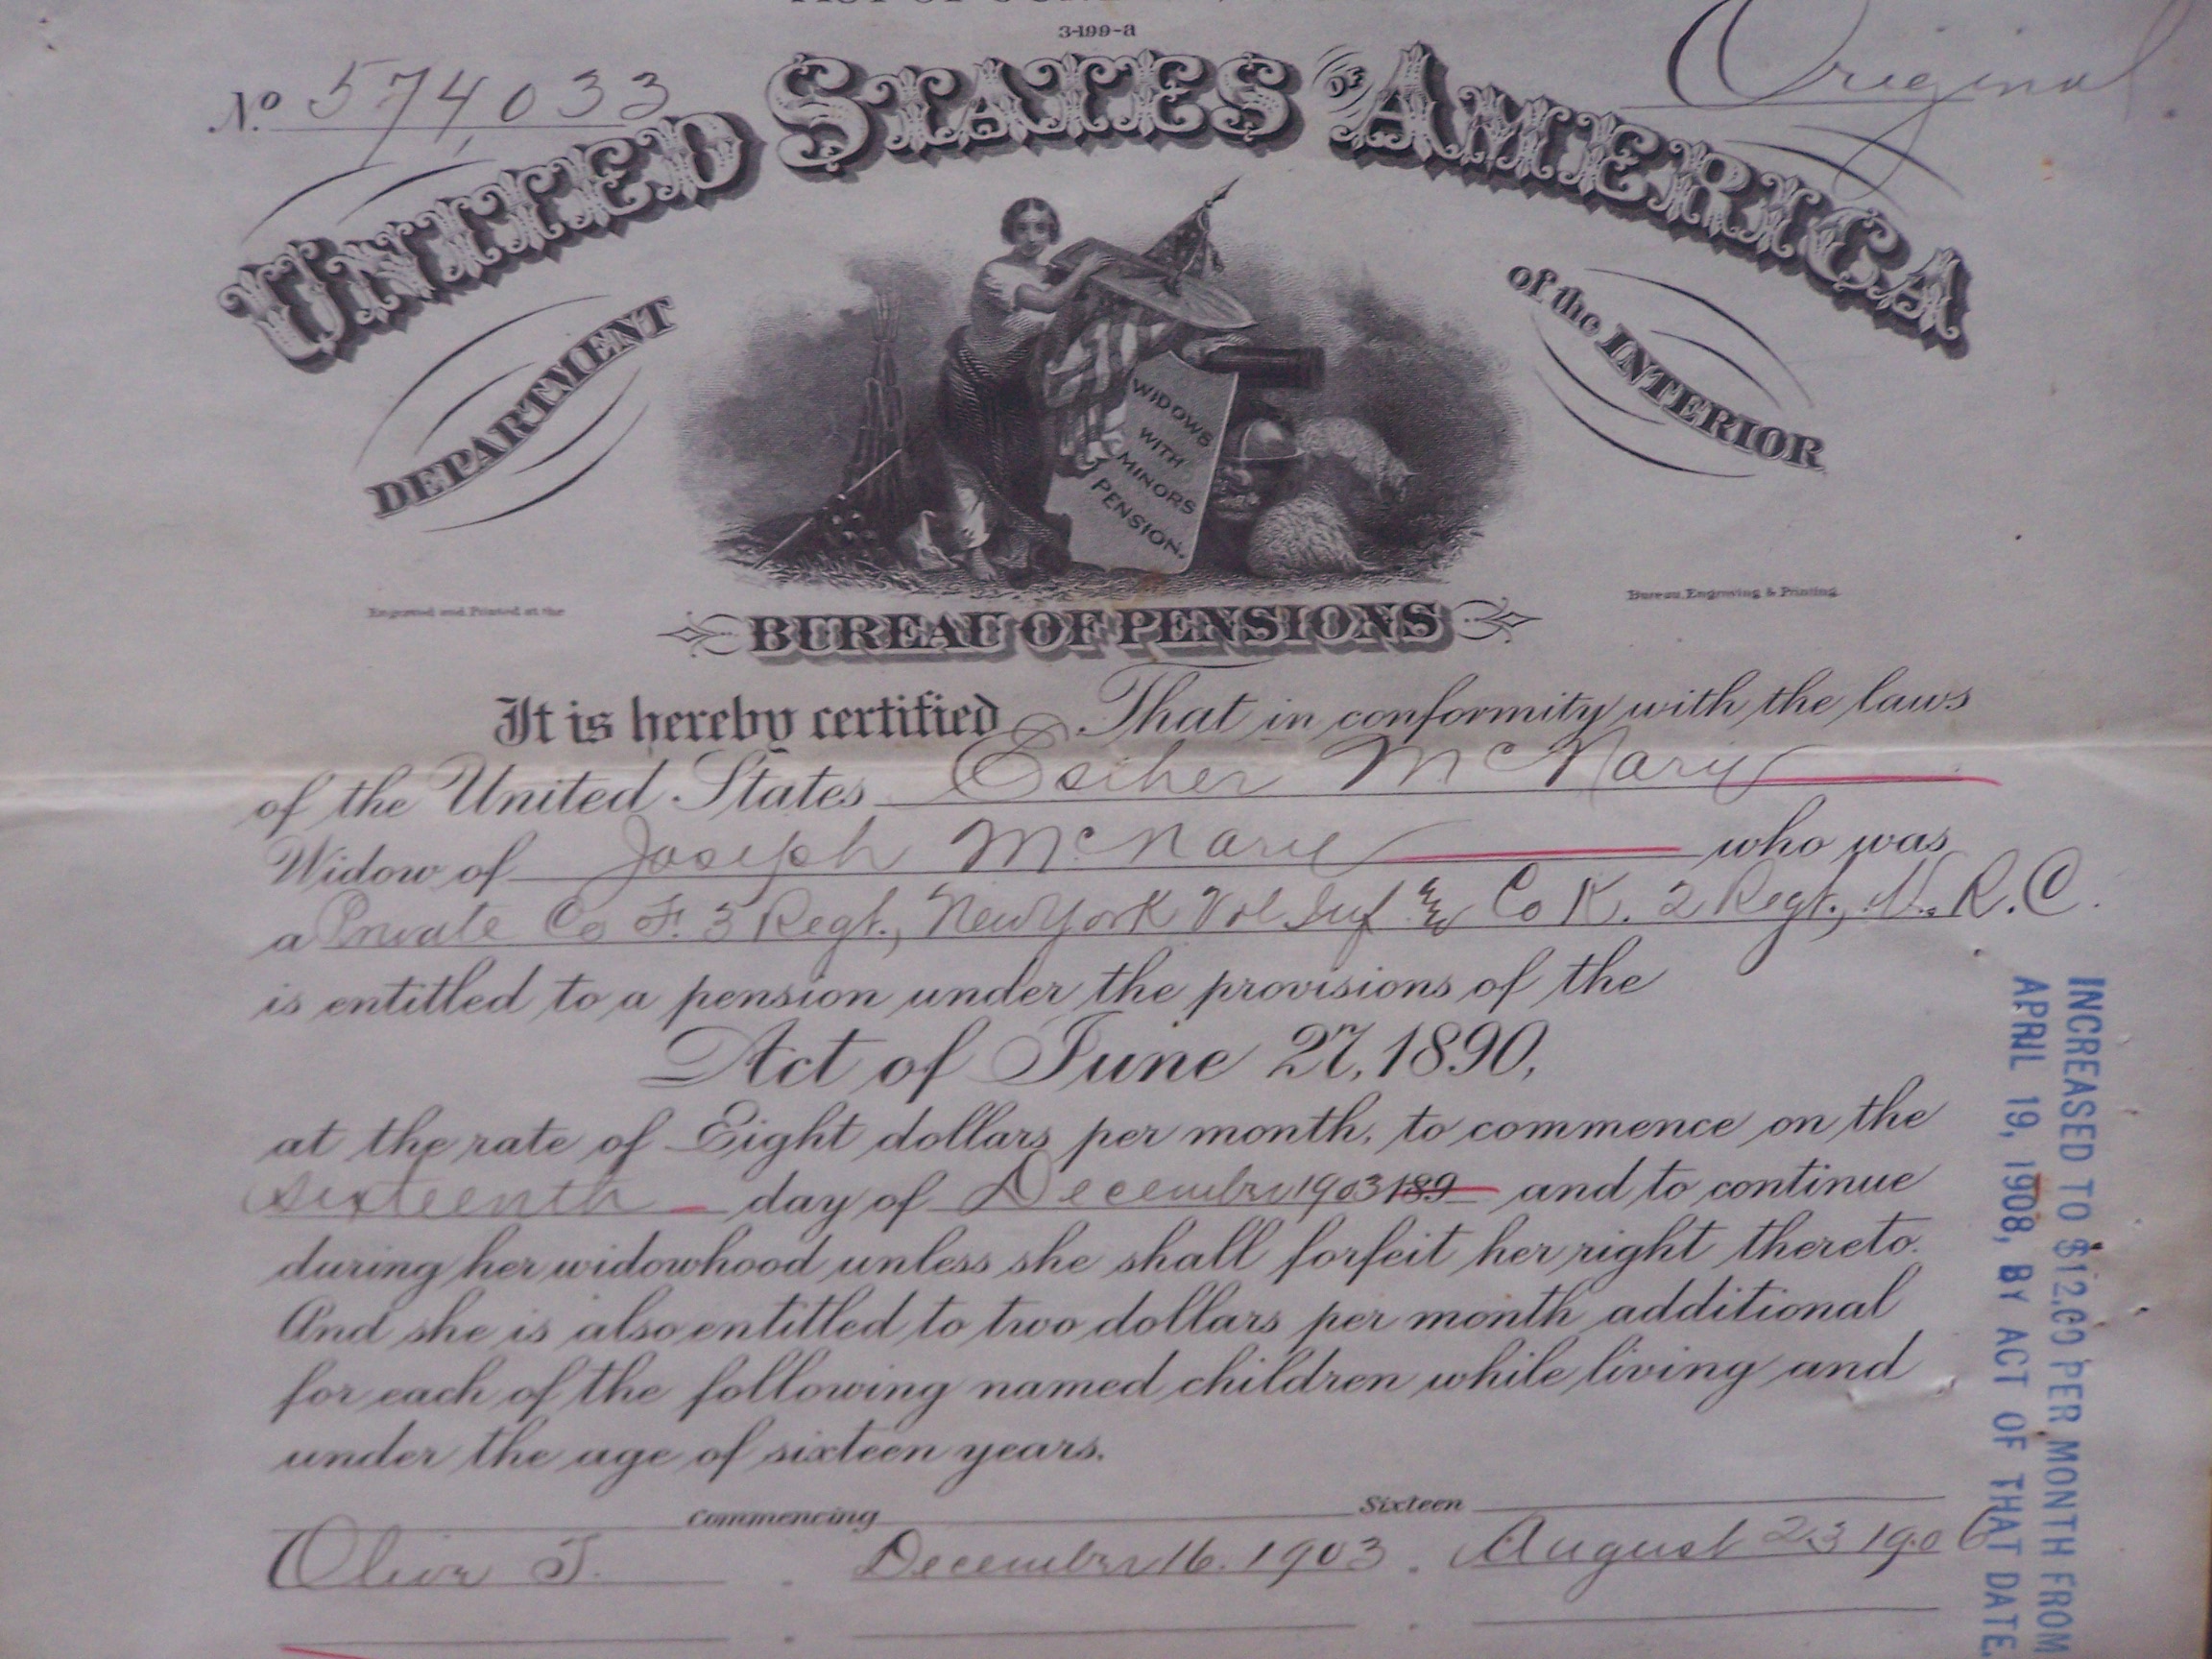 3-199-a
Original
No 574,033
UNITED STATES OF AMERICA
DEPARTMENT of the INTERIOR
WIDOWS
WITH
MINORS
PENSION.
Engraved and Printed at the Bureau, Engraving & Printing.
BUREAU OF PENSIONS
It is hereby certified That in conformity with the laws
of the United States Esther McNary
Widow of Joseph McNary who was
a Private Co F. 3 Regt., New York Vol Inf & Co K. 2 Regt., V. R. C.
is entitled to a pension under the provisions of the
Act of June 27, 1890,
at the rate of Eight dollars per month, to commence on the
sixteenth day of December 1903 189 and to continue
during her widowhood unless she shall forfeit her right thereto.
And she is also entitled to two dollars per month additional
for each of the following named children while living and
under the age of sixteen years.
Commencing Sixteen
Olive J. December 16. 1903. August 23 1906
INCREASED TO $12.00 PER MONTH FROM
APRIL 19, 1908, BY ACT OF THAT DATE.